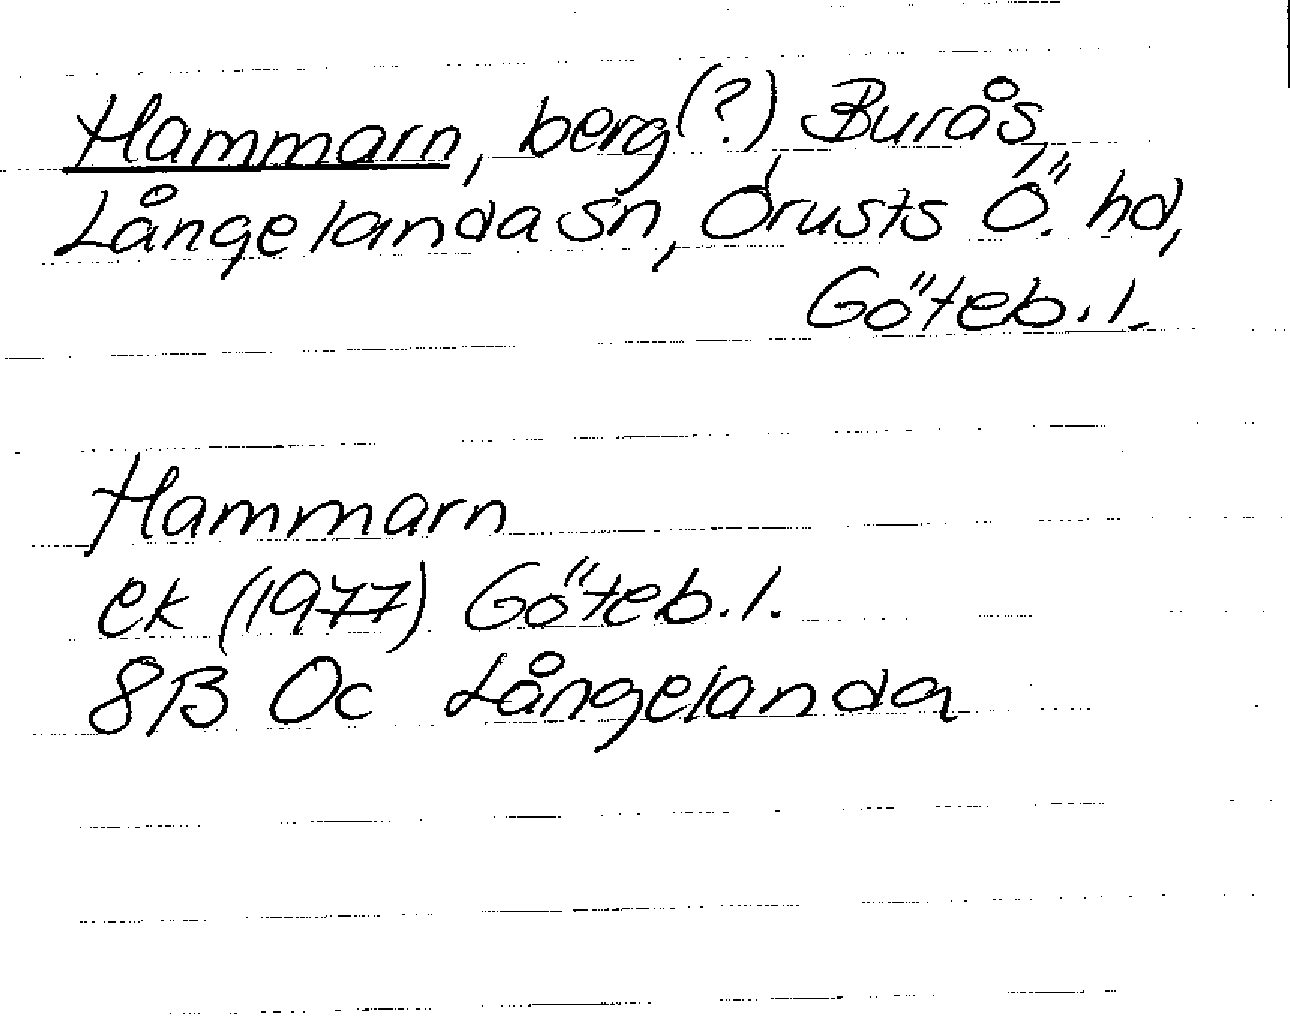 Hammarn, berg (?) Burås,
Långelanda sn, Orusts Ö. hd,
Göteb. l.
Hammarn
ek (1977) Göteb. l.
8B 0c Långelanda